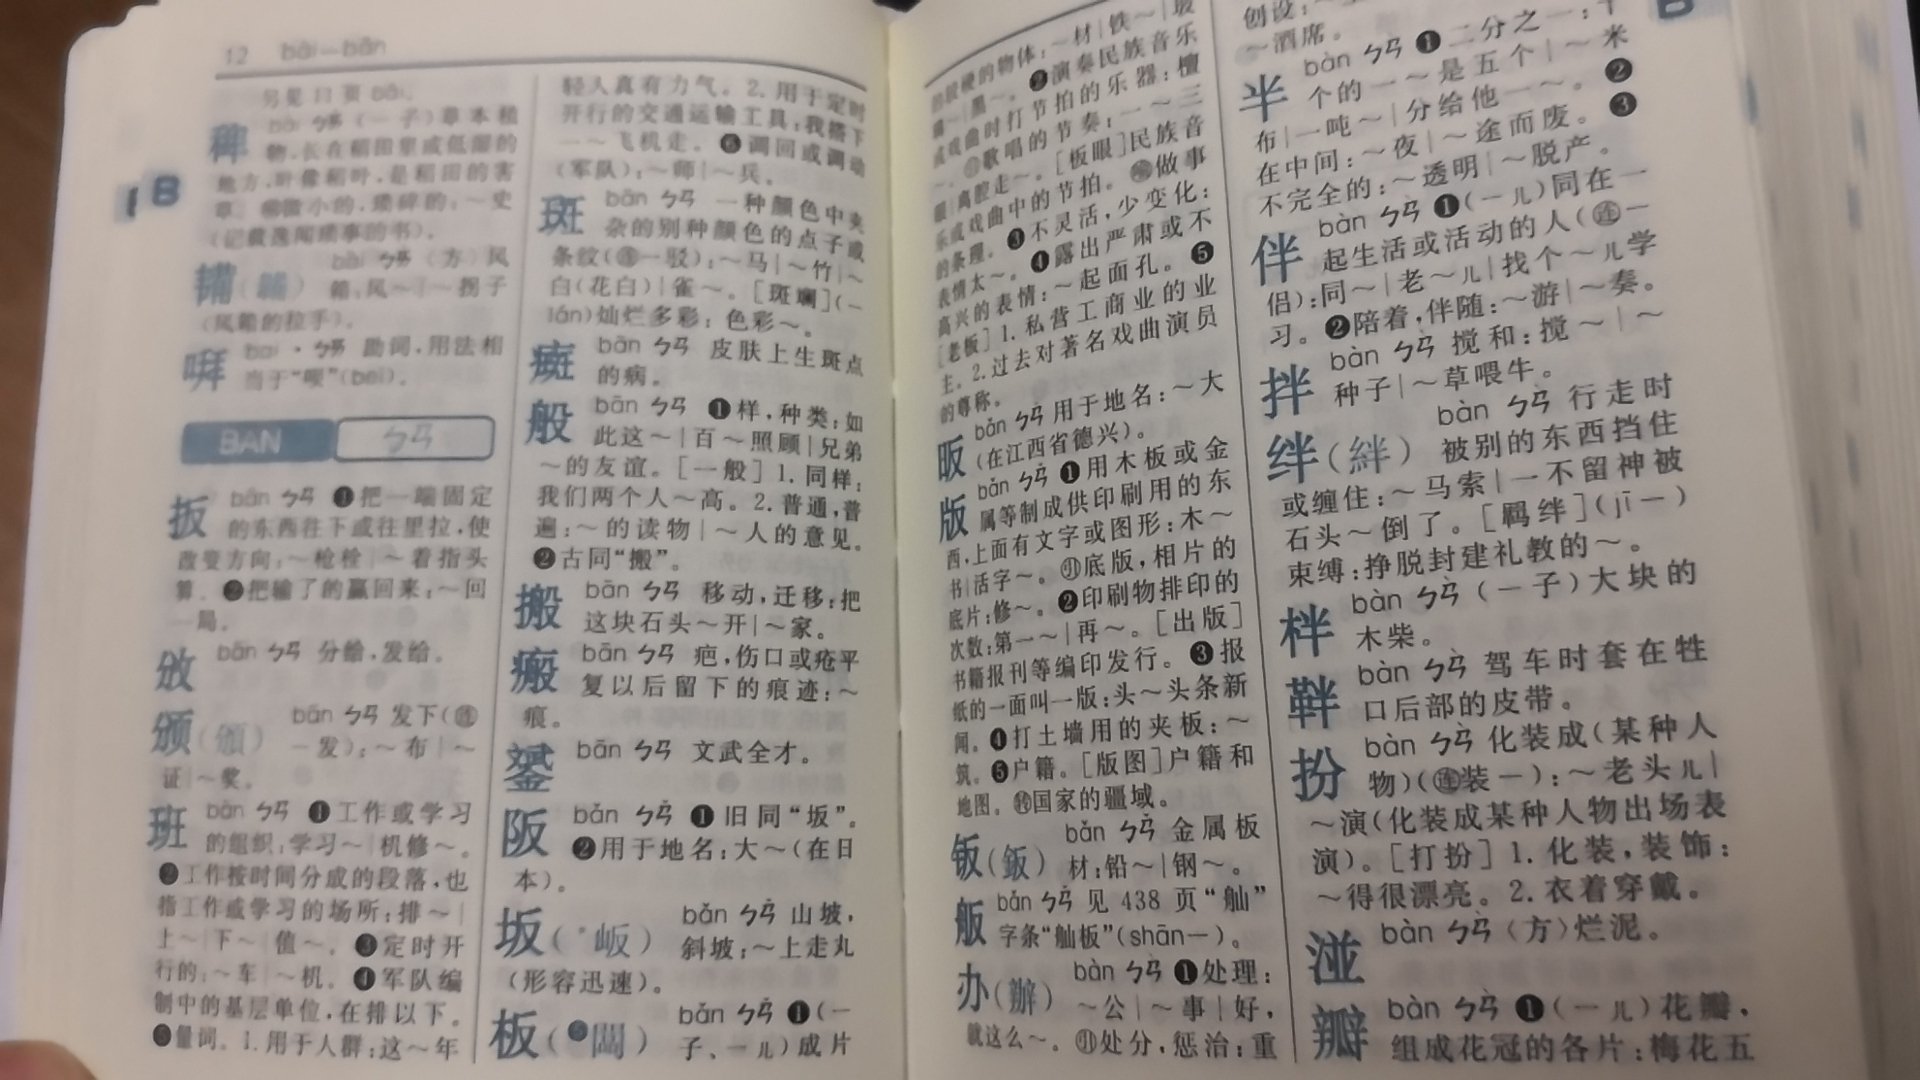 12 bāi—bān
另见11页bāi。
稗 bài ㄅㄞˋ (一子)草本植
物,长在稻田里或低湿的
地方,叶像稻叶,是稻田的害
草。 微小的,琐碎的:~史
(记载逸闻琐事的书)。
鞴( ) bài ㄅㄞˋ (方)风
箱:风~|~拐子
(风箱的拉手)。
㗑 bai ·ㄅㄞ 助词,用法相
当于“呗”(bei)。
BAN ㄅㄢ
扳 bān ㄅㄢ ❶把一端固定
的东西往下或往里拉,使
改变方向:~枪栓|~着指头
算。❷把输了的赢回来:~回
一局。
攽 bān ㄅㄢ 分给,发给。
颁(頒) bān ㄅㄢ 发下(连
一发):~布|~
证|~奖。
班 bān ㄅㄢ ❶工作或学习
的组织:学习~|机修~。
❷工作按时间分成的段落,也
指工作或学习的场所:排~|
上~|下~|值~。❸定时开
行的:~车|~机。❹军队编
制中的基层单位,在排以下。
❺量词。1.用于人群:这~年
轻人真有力气。2.用于定时
开行的交通运输工具:我搭下
一~飞机走。❻调回或调动
(军队):~师|~兵。
斑 bān ㄅㄢ 一种颜色中夹
杂的别种颜色的点子或
条纹(连一驳):~马|~竹|~
白(花白)|雀~。[斑斓](—
lán)灿烂多彩:色彩~。
癍 bān ㄅㄢ 皮肤上生斑点
的病。
般 bān ㄅㄢ ❶样,种类:如
此这~|百~照顾|兄弟
~的友谊。[一般]1.同样:
我们两个人~高。2.普通,普
遍:~的读物|~人的意见。
❷古同“搬”。
搬 bān ㄅㄢ 移动,迁移:把
这块石头~开|~家。
瘢 bān ㄅㄢ 疤,伤口或疮平
复以后留下的痕迹:~
痕。
斒 bān ㄅㄢ 文武全才。
阪 bǎn ㄅㄢˇ ❶旧同“坂”。
❷用于地名:大~(在日
本)。
坂(*岅) bǎn ㄅㄢˇ 山坡,
斜坡:~上走丸
(形容迅速)。
板(❻闆) bǎn ㄅㄢˇ ❶(一
子、一儿)成片
的较硬的物体:~材|铁~|玻
璃~|黑~。❷演奏民族音乐
或戏曲时打节拍的乐器:檀
~。引歌唱的节奏:一~三
眼|离腔走~。[板眼]民族音
乐或戏曲中的节拍。喻做事
的条理。❸不灵活,少变化:
表情太~。❹露出严肃或不
高兴的表情:~起面孔。❺
[老板]1.私营工商业的业
主。2.过去对著名戏曲演员
的尊称。
昄 bǎn ㄅㄢˇ 用于地名:~大
(在江西省德兴)。
版 bǎn ㄅㄢˇ ❶用木板或金
属等制成供印刷用的东
西,上面有文字或图形:木~
书|活字~。引底版,相片的
底片:修~。❷印刷物排印的
次数:第一~|再~。[出版]
书籍报刊等编印发行。❸报
纸的一面叫一版:头~头条新
闻。❹打土墙用的夹板:~
筑。❺户籍。[版图]户籍和
地图。转国家的疆域。
钣(鈑) bǎn ㄅㄢˇ 金属板
材:铅~|钢~。
舨 bǎn ㄅㄢˇ 见438页“舢”
字条“舢板”(shān—)。
办(辦) bàn ㄅㄢˋ ❶处理:
~公|~事|好,
就这么~。引处分,惩治:重
创设:
~酒席。
半 bàn ㄅㄢˋ ❶二分之一:十
个的一~是五个|~米
布|一吨~|分给他一~。❷
在中间:~夜|~途而废。❸
不完全的:~透明|~脱产。
伴 bàn ㄅㄢˋ ❶(一儿)同在一
起生活或活动的人(连一
侣):同~|老~儿|找个~儿学
习。❷陪着,伴随:~游|~奏。
拌 bàn ㄅㄢˋ 搅和:搅~|~
种子|~草喂牛。
绊(絆) bàn ㄅㄢˋ 行走时
被别的东西挡住
或缠住:~马索|一不留神被
石头~倒了。[羁绊](jī—)
束缚:挣脱封建礼教的~。
柈 bàn ㄅㄢˋ (一子)大块的
木柴。
靽 bàn ㄅㄢˋ 驾车时套在牲
口后部的皮带。
扮 bàn ㄅㄢˋ 化装成(某种人
物)(连装一):~老头儿|
~演(化装成某种人物出场表
演)。[打扮]1.化装,装饰:
~得很漂亮。2.衣着穿戴。
湴 bàn ㄅㄢˋ (方)烂泥。
瓣 bàn ㄅㄢˋ ❶(一儿)花瓣,
组成花冠的各片:梅花五
B
B